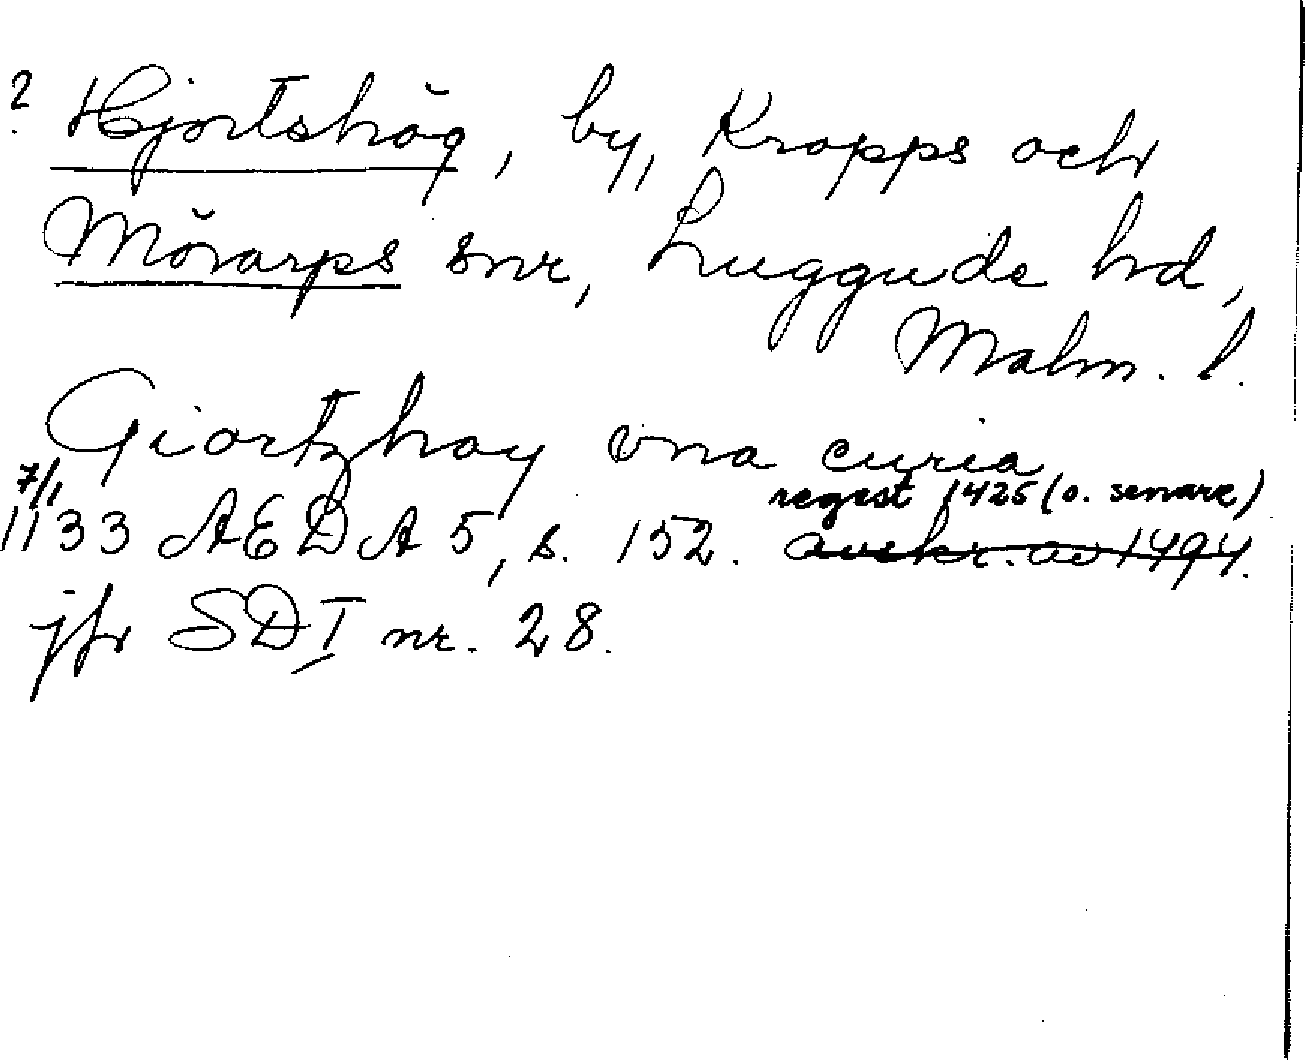 ? Hjortshög, by, Kropps och
Mörarps snr, Luggude hd,
Malm. l.
Giortzhoy vna curia
7/1 1133 AEDA 5, s. 152. regest 1425 (o. senare)
avskr. av 1494.
jfr SD I nr. 28.